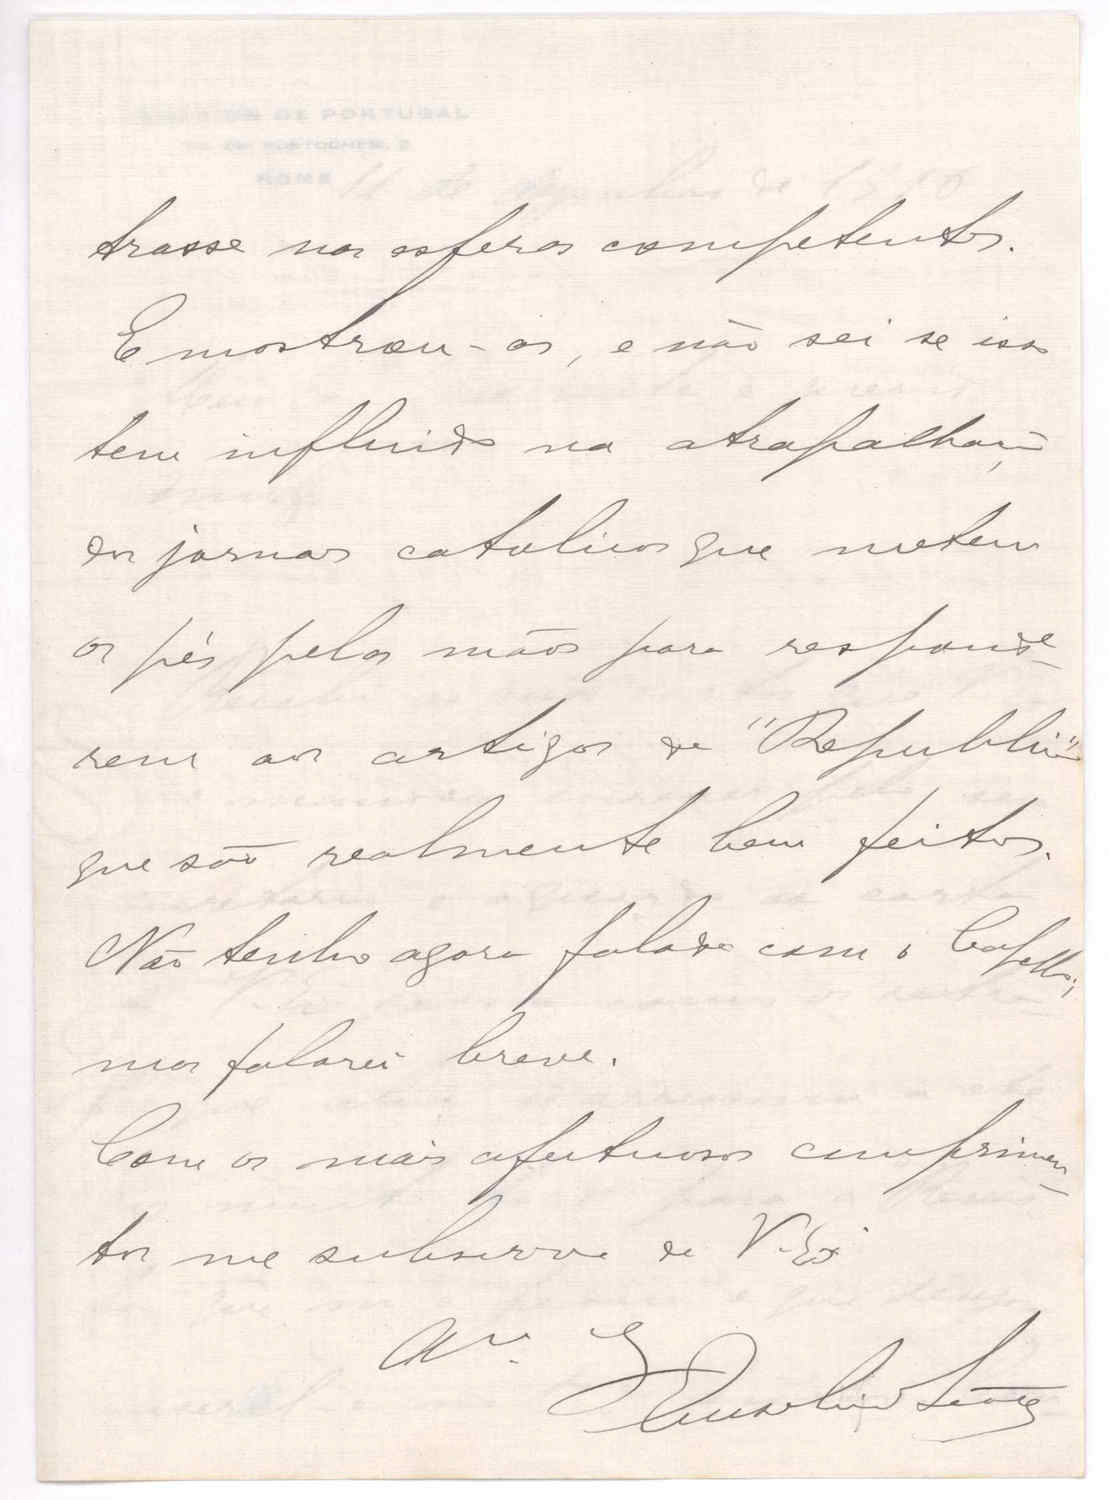 DE PORTUGAL
ROME
trasse nas esferas competentes.
E mostrou-os, e não sei se isso
tem influido na atrapalhação
dos jornais catolicos que metem
os pés pelas mãos para responde-
rem aos artigos da "Republica"
que são realmente bem feitos.
Não tenho agora falado com o Capello;
mas falarei breve.
Com os mais afectuosos cumprimen-
tos me subscrevo de V. Ex.ª